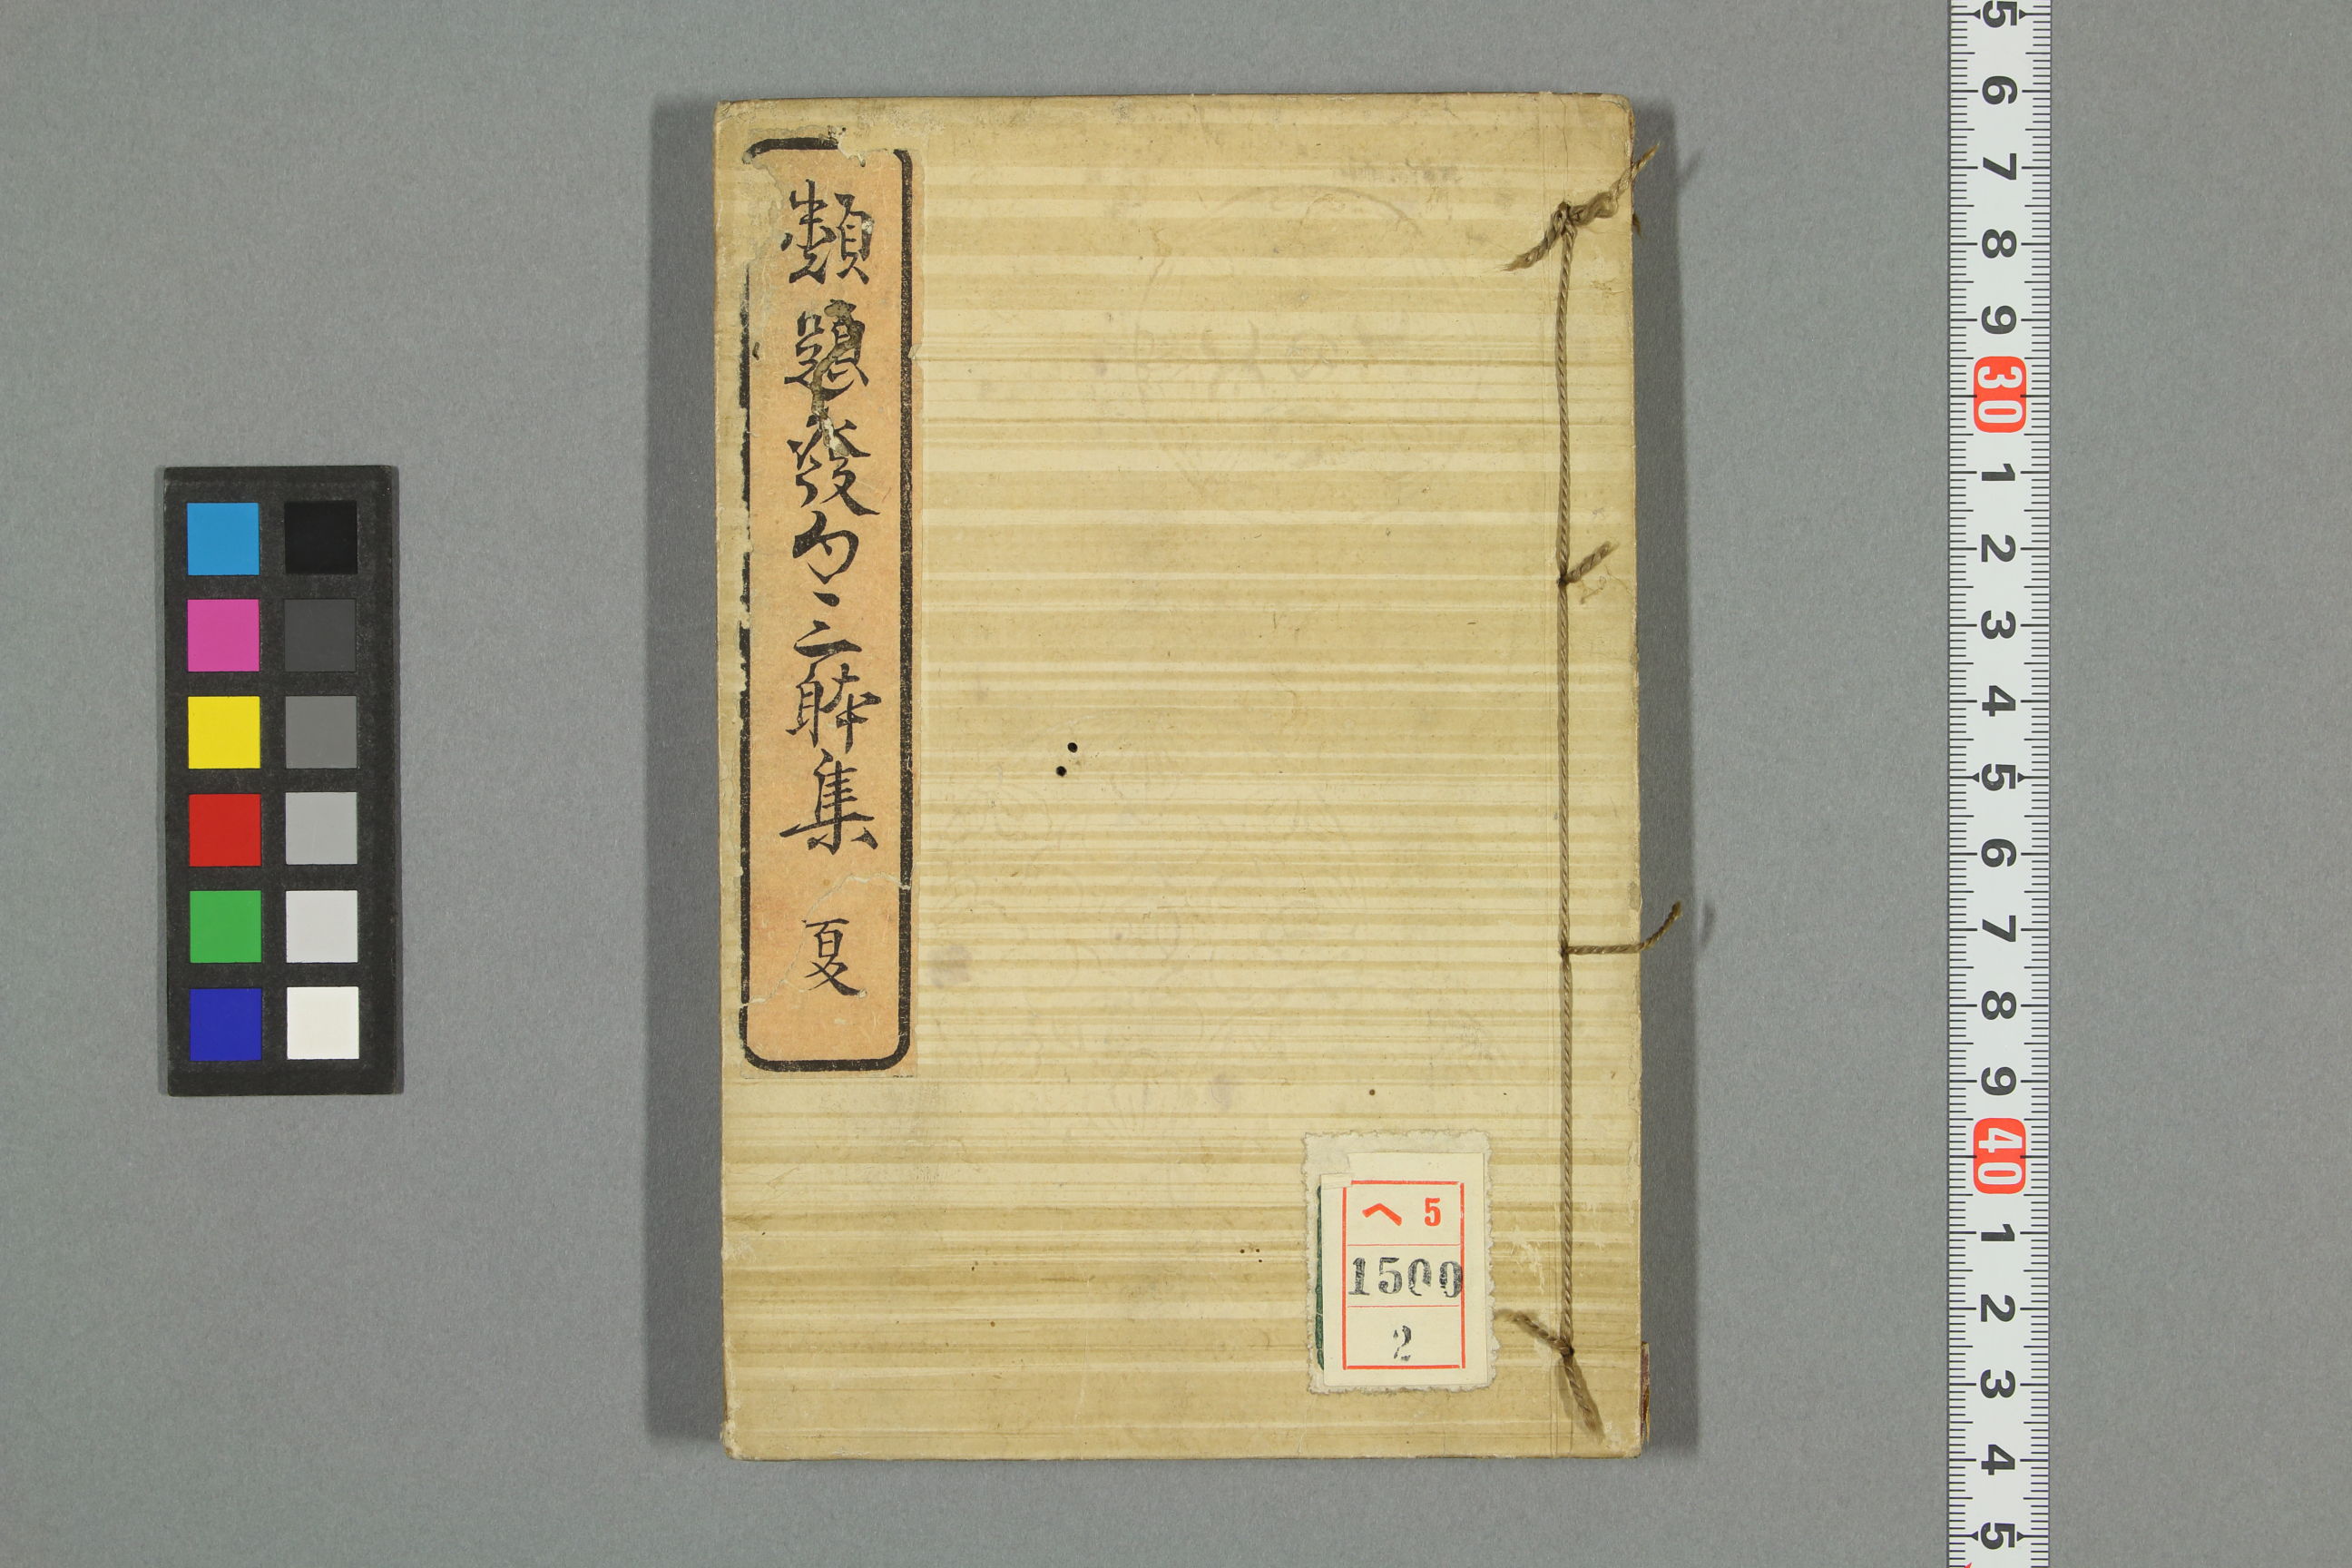 類題發句三躰集 夏
ヘ 5
1500
2
5 6 7 8 9 30 1 2 3 4 5 6 7 8 9 40 1 2 3 4 5